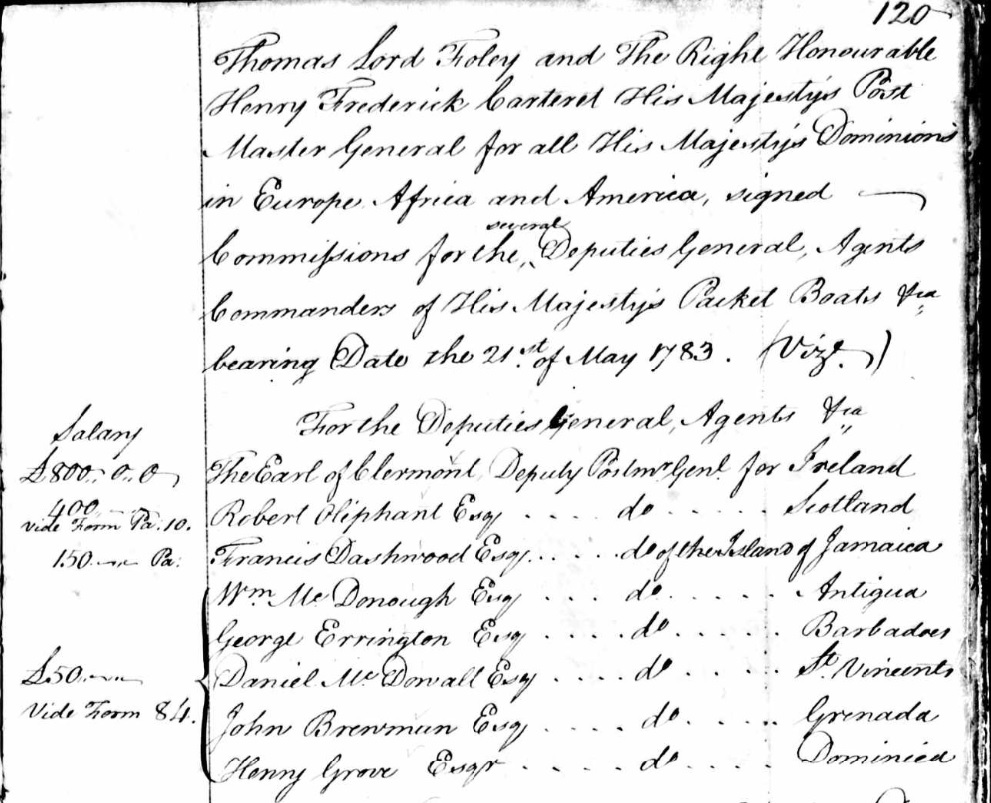 120
Thomas Lord Foley and The Right Honourable
Henry Frederick Carteret His Majesty's Post
Master General for all His Majesty's Dominions
in Europe Africa and America, signed
several
Commissions for the Deputies General, Agents
Commanders of His Majesty's Packet Boats &ca
bearing Date the 21st of May 1783. (Vizt.)
For the Deputies General, Agents &ca
Salary
£800..0..0 The Earl of Clermont, Deputy Postmr Genl. for Ireland
400 Robert Oliphant Esqr .... do ..... Scotland
Vide Form Pa. 10.
150 Pa. Francis Dashwood Esqr ... do of the Island of Jamaica
Wm Mc Donough Esqr .... do ..... Antigua
George Errington Esqr .... do ..... Barbadoes
£50 Daniel Mc Dowall Esqr .... do ..... St. Vincents
Vide Form 84. John Brewmun Esqr .... do ..... Grenada
Henry Grove Esqr ..... do .... Dominica